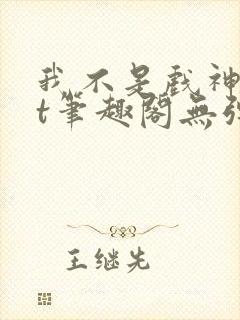 我不是戏神
t筆趣閣無弹
王继先